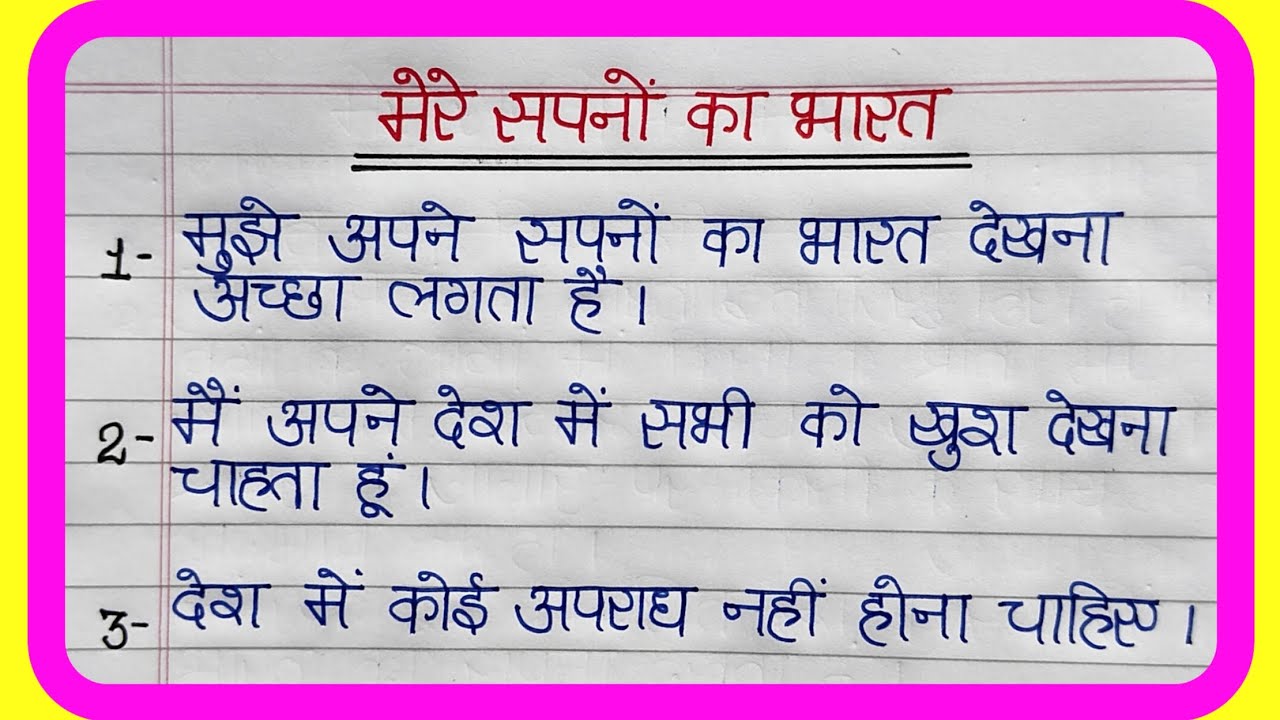 मेरे सपनों का भारत
1- मुझे अपने सपनों का भारत देखना
अच्छा लगता है।
2- मैं अपने देश में सभी को खुश देखना
चाहता हूं।
3- देश में कोई अपराध नहीं होना चाहिए।